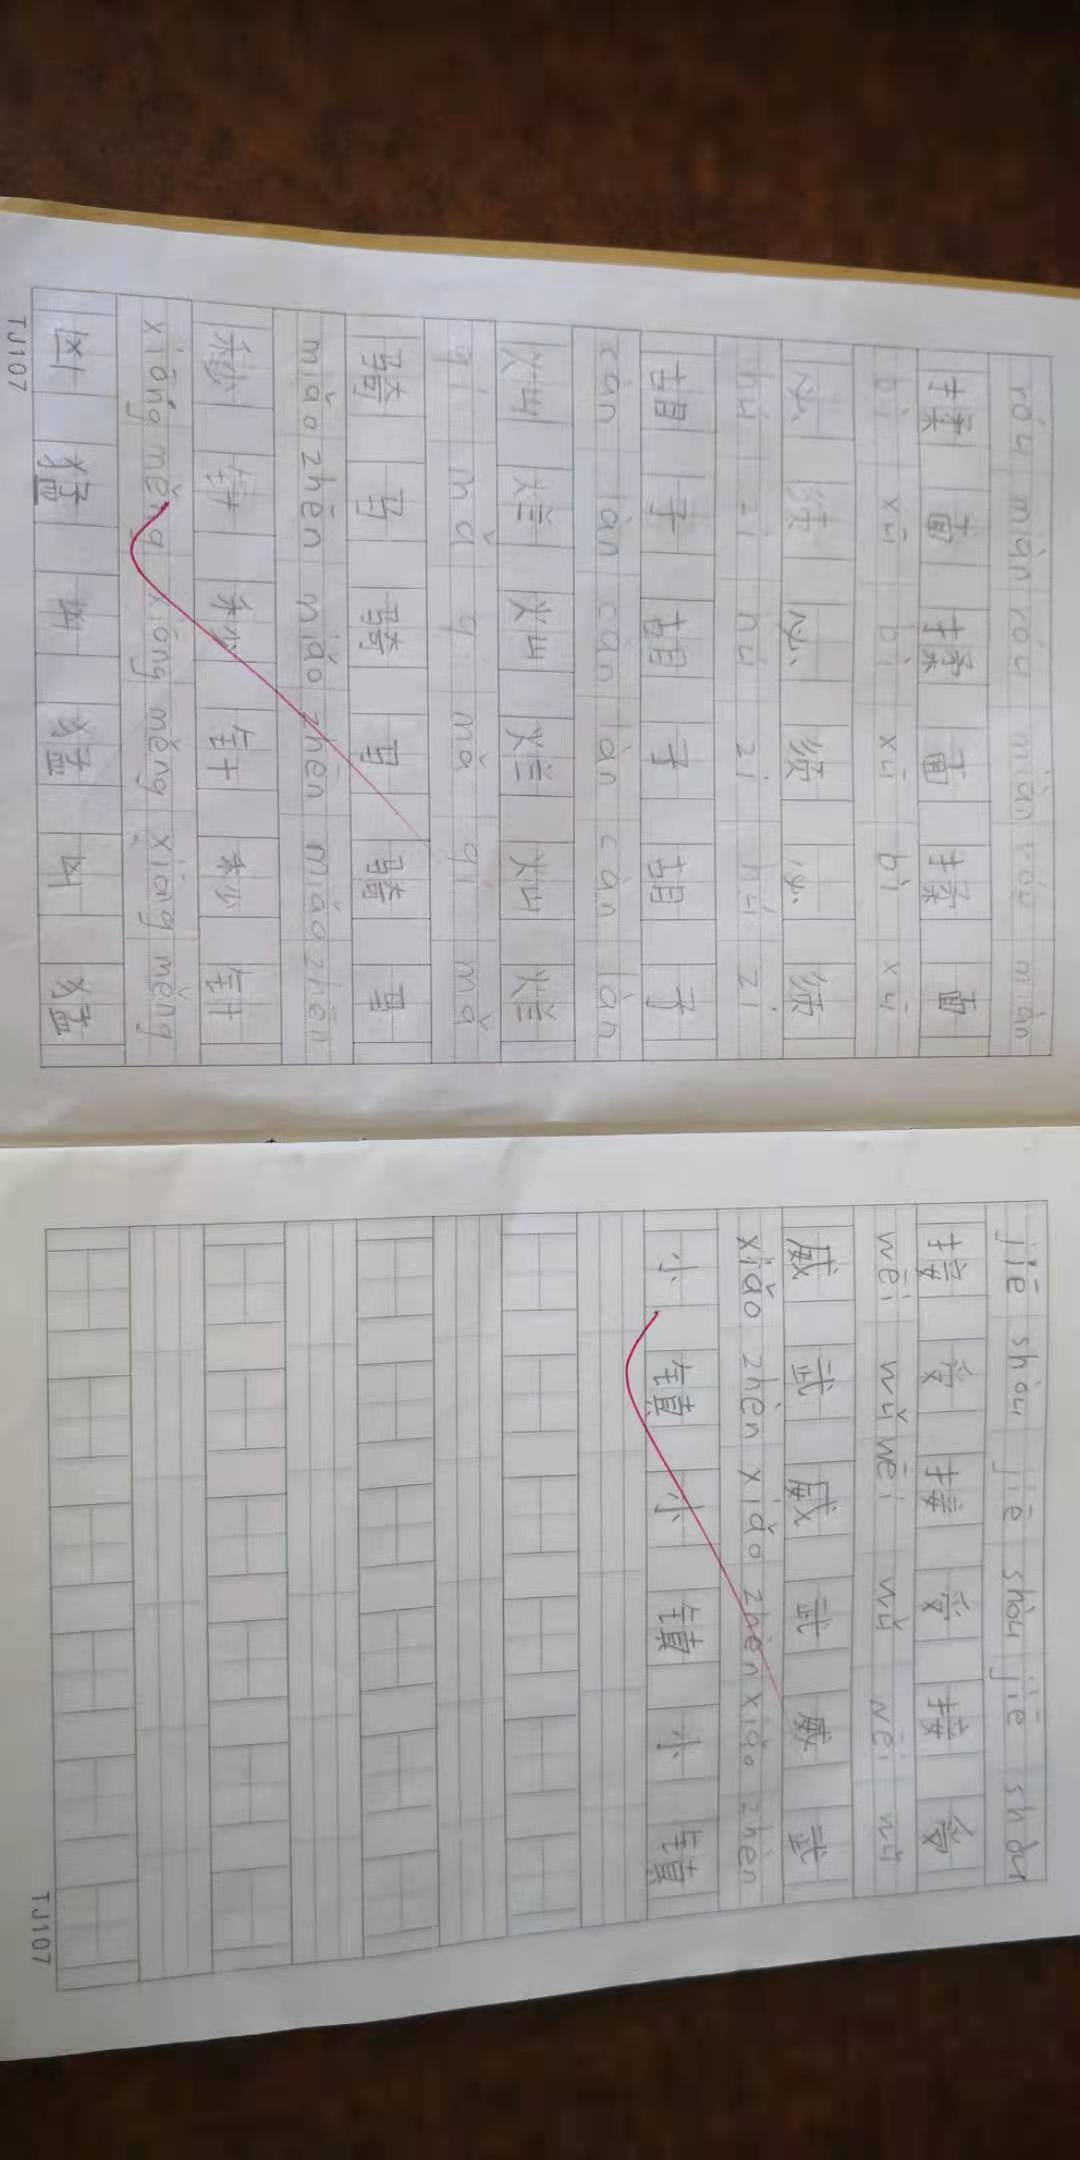 róu miàn róu miàn róu miàn
揉 面 揉 面 揉 面
bì xū bì xū bì xū
必 须 必 须 必 须
hú zi hú zi hú zi
胡 子 胡 子 胡 子
càn làn càn làn càn làn
灿 烂 灿 烂 灿 烂
qí mǎ qí mǎ qí mǎ
骑 马 骑 马 骑 马
miǎo zhēn miǎo zhēn miǎo zhēn
秒 针 秒 针 秒 针
xiōng měng xiōng měng xiōng měng
凶 猛 凶 猛 凶 猛
TJ107
jiē shòu jiē shòu jiē shòu
接 受 接 受 接 受
wēi wǔ wēi wǔ wēi wǔ
威 武 威 武 威 武
xiǎo zhèn xiǎo zhèn xiǎo zhèn
小 镇 小 镇 小 镇
TJ107